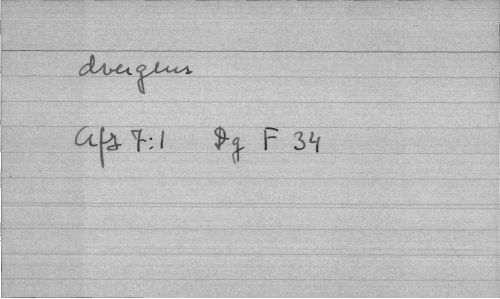 dvergens
Afs 7:1 Dg F 34